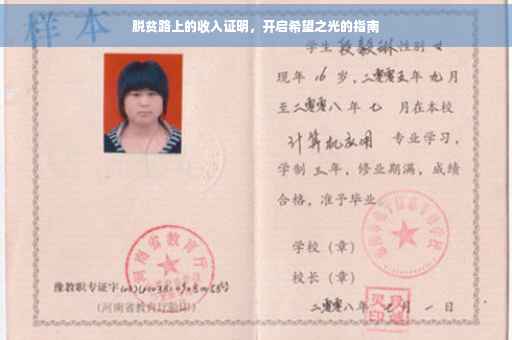 样本
脱贫路上的收入证明，开启希望之光的指南
学生段毅琳性别女
现年16岁，二零零五年九月
至二零零八年七月在本校
计算机应用 专业学习，
学制三年，修业期满，成绩
合格，准予毕业
学校（章）
校长（章）
二零零八年七月一日
河南省教育厅
豫教职专证字
（河南省教育厅验印）